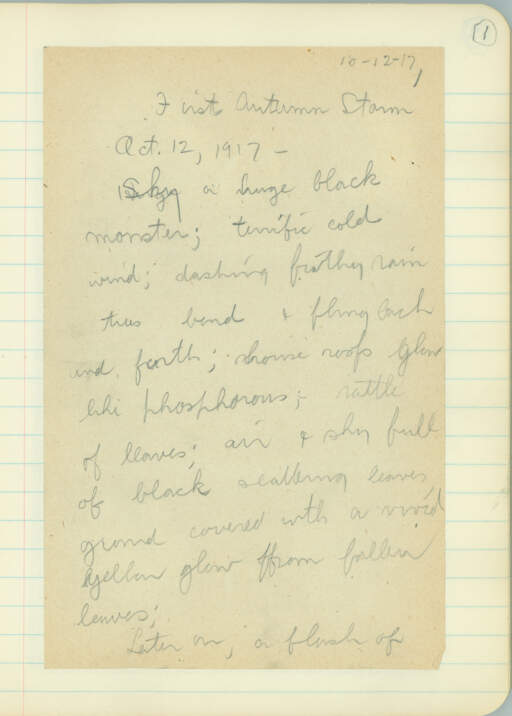 1
10-12-17
First Autumn Storm
Oct. 12, 1917 –
Sky a huge black
monster; terrific cold
wind; dashing rain
trees bend & fling back
and forth; house roofs glow
like phosphorous; rattle
of leaves; air & sky full
of black scattering leaves,
ground covered with a vivid
yellow glow from fallen
leaves;
Later on, a flash of